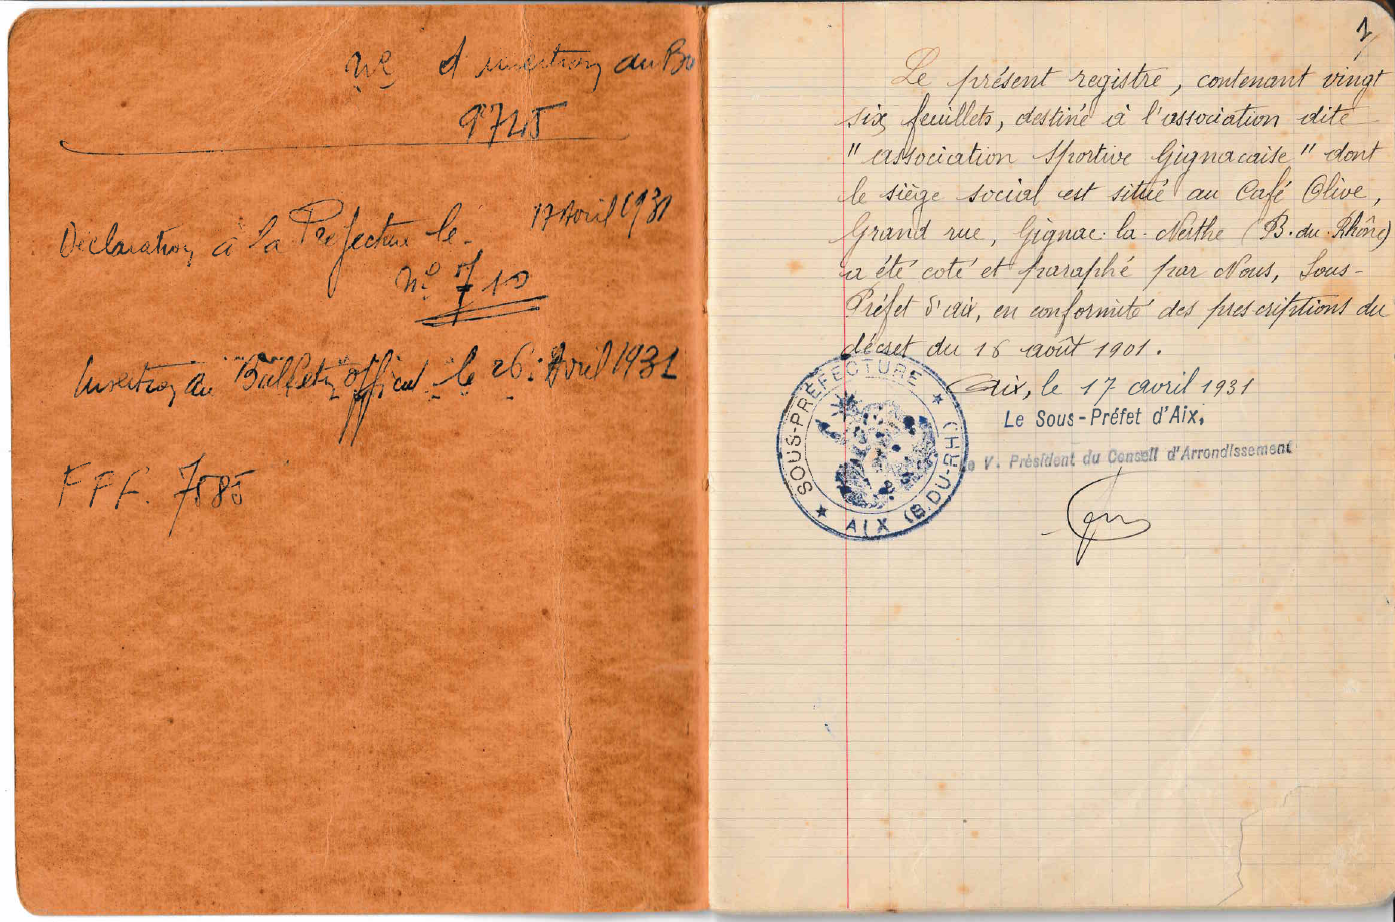 No d'insertion au Bu
9745
Déclaration à la Préfecture le 17 Avril 1931
No 710
Insertion au Bulletin officiel le 26 Avril 1931
F F F. 7585
1
Le présent registre, contenant vingt
six feuillets, destiné à l'association dite
" association Sportive Gignacaise " dont
le siège social est situé au Café Olive,
Grand rue, Gignac-la-Nerthe (B.du.Rhône)
a été coté et paraphé par Nous, Sous-
Préfet d'aix, en conformité des prescriptions du
décret du 16 août 1901.
Aix, le 17 avril 1931
Le Sous-Préfet d'Aix,
Le V. Président du Conseil d'Arrondissement
SOUS-PRÉFECTURE ★ AIX (B.DU-RH) ★